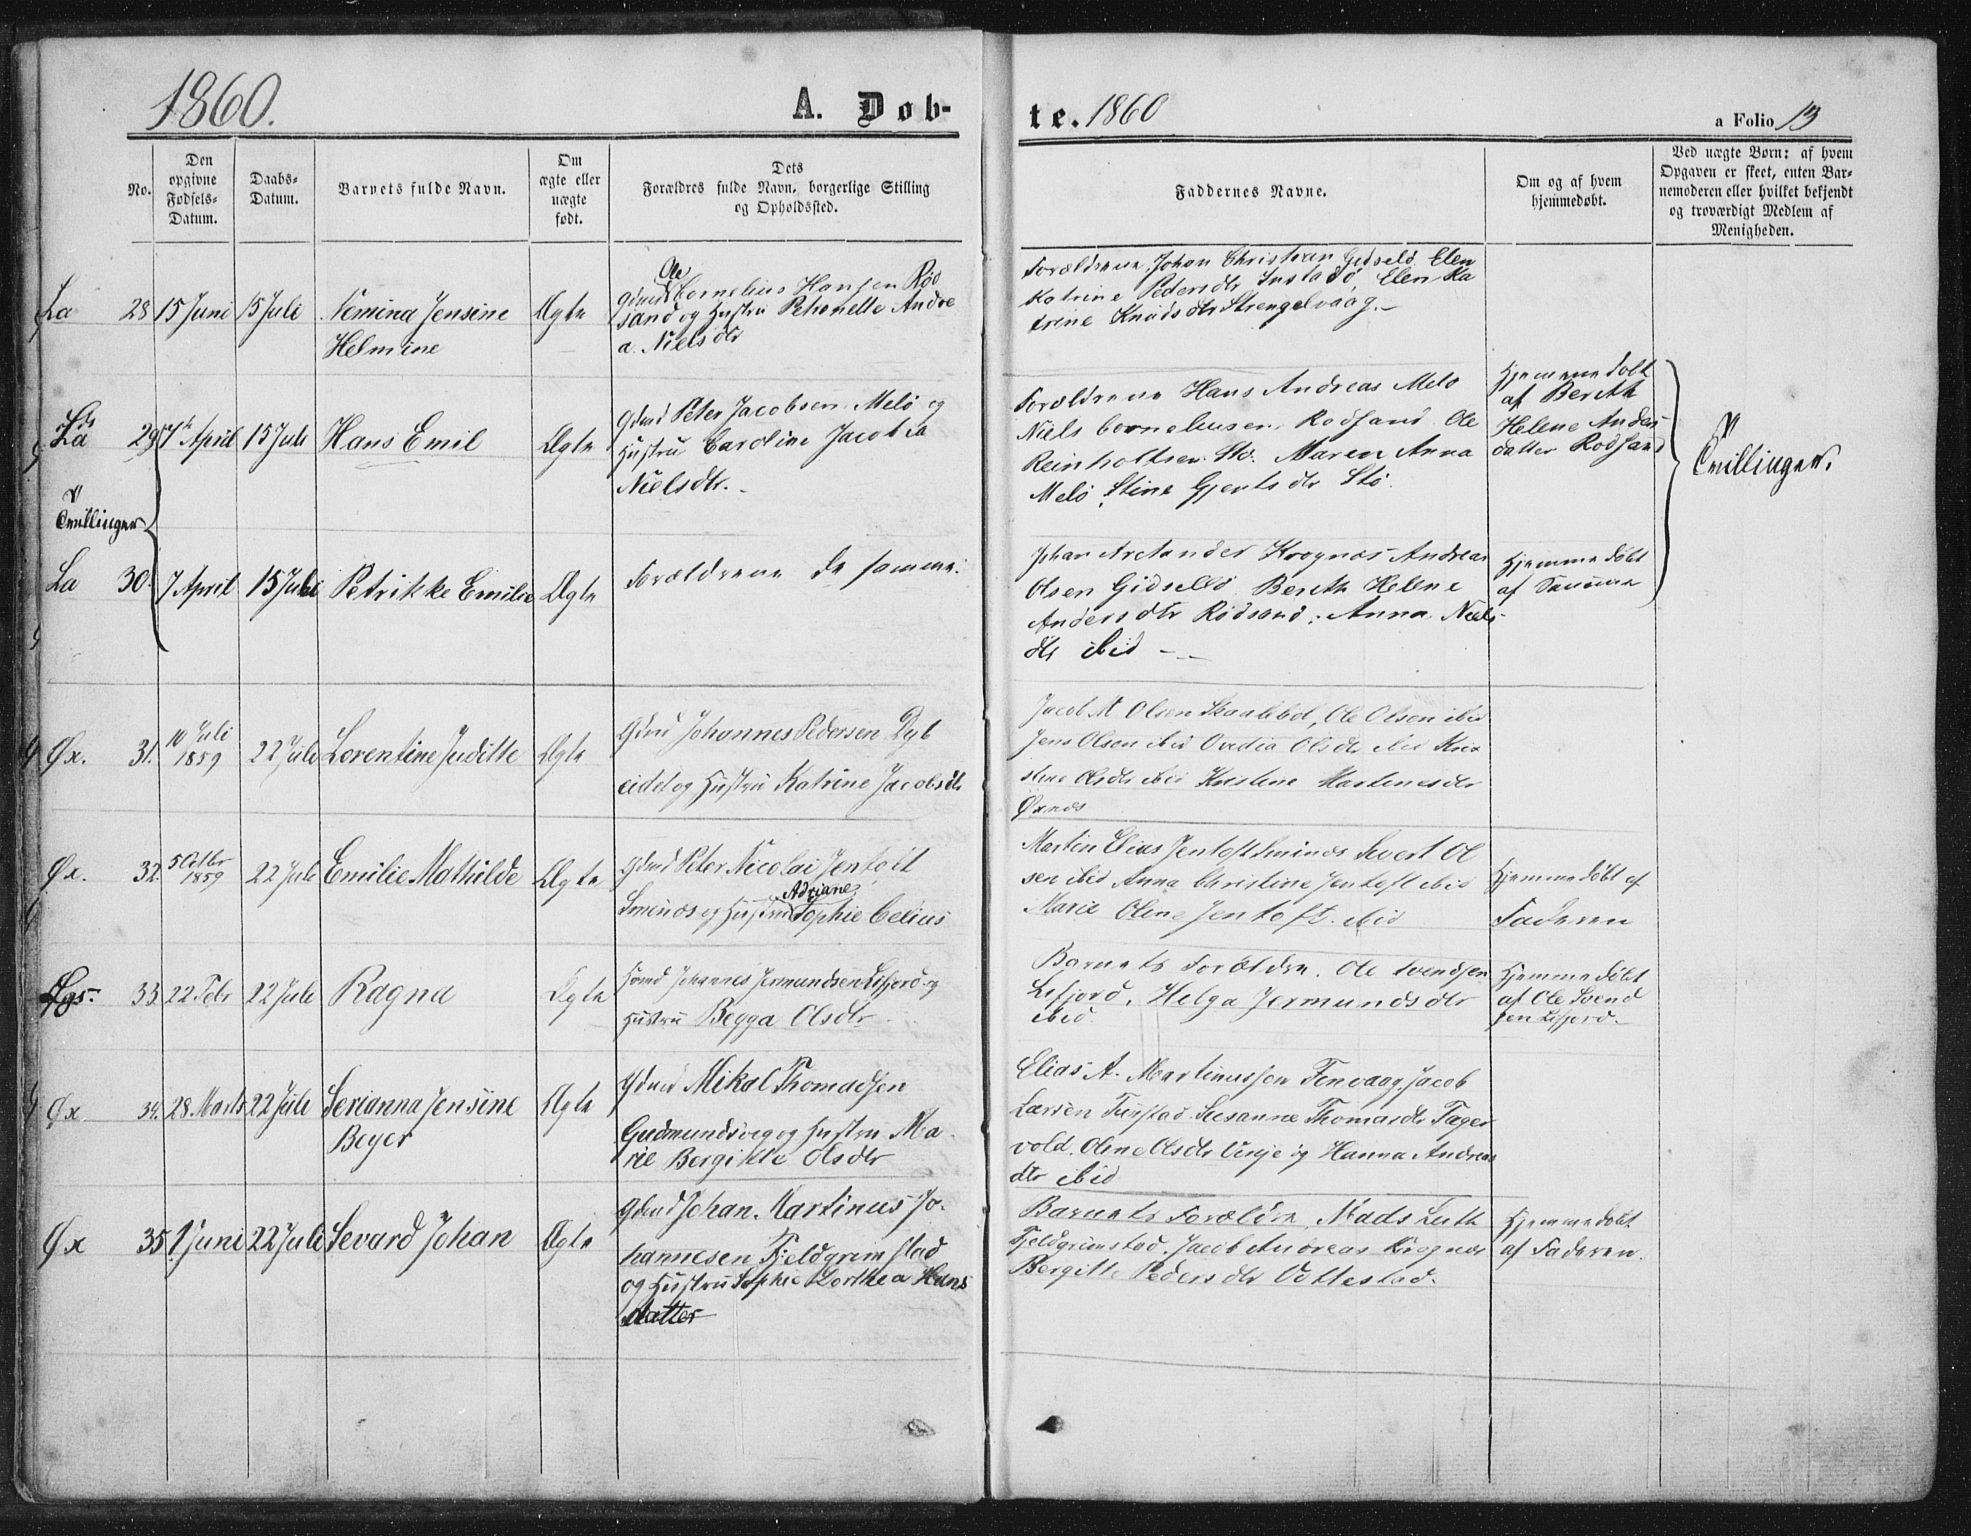 1860.
A. Døb-
te. 1860
a Folio 13
No.
Den
opgivne
Fødsels-
Datum.
Daabs-
Datum.
Barnets fulde Navn.
Om
ægte eller
uægte
født.
Dets
Forældres fulde Navn, borgerlige Stilling
og Opholdssted.
Faddernes Navne.
Om og af hvem
hjemmedøbt.
Ved uægte Børn: af hvem
Opgaven er skeet, enten Bar-
nemoderen eller hvilket bekjendt
og troværdigt Medlem af
Menigheden.
La 28 15 Juni 15 Juli Nemina Jensine
Helmine
Ægte
Ole
Gdmd Cornelius Hansen Rød
sand og Hustru Petronelle Andre
a. Nielsdtr
Forældrene, Johan Christian Gidselø Elen
Katrine Pedersdtr Instadø, Elen Ka
trine Knudsdtr Strengelvaag.
La 29 7 April 15 Juli Hans Emil Ægte
Gdmd Peter Jacobsen Melø og
Hustru Caroline Jacobia
Nielsdtr.
Forældrene Hans Andreas Melø
Niels Corneliussen Rødsand Ole
Reinholtsen Stø. Maren Anna
Melø, Stine Gjertsdtr Stø.
Hjemmedøbt
af Bereth
Helene Anders
datter Rødsand
Tvillinger.
Tvillinger
La 30. 7 April 15 Juli Petrikke Emilie Ægte
Forældrene de samme.
Johan Arctander Krognæs Andreas
Olsen Gidselø Bereth Helene
Andersdtr Rødsand; Anna Niels-
dtr ibid
Hjemmedøbt
af Samme
Øx. 31. 10 Juli
1859
22 Juli Lorentine Juditte Ægte
Gdmd Johannes Pedersen Dyb
eidet og Hustru Katrine Jacobsdtr
Jacob M Olsen Skaalebol, Ole Olsen ibid
Jens Olsen ibid Ovedia Olsdtr ibid Kri
stine Olsdtr ibid Kristine Martinesdtr
Øxnæs
Øx. 32. 5 Octbr
1859
22 Juli Emilie Mathilde Ægte
Gdmd Peter Nicolai Jentoft
Adriane
Smenæs og Hustru Sophie Celius
Martin Elias Jentoft Smines Sivert Ol
sen ibid Anna Christine Jentoft ibid
Marie Oline Jentoft. ibid
Hjemmedøbt af
Faderen
33 22 Febr 22 Juli Ragna Ægte
Johannes Jermundsen Lifjord og
Hustru Begga Olsdtr
Barnets Forældre. Ole Svendsen
Lifjord. Helga Jermundsdtr
ibid.
Hjemmedøbt
af Ole Svend
sen Lifjord.
Øx 34. 28 Marts 22 Juli Serianna Jensine
Beyer
Ægte
Gdmd Mikal Thomassen
Gudmundsvig og Hustru Ma
rie Bergitte Olsdtr
Elias A. Martinussen Finvaag, Jacob
Larsen Tunstad Susanne Thomasdtr Fager
vold. Oline Olsdtr Vinje og Hanna Andreas
dtr ibid
Øx 35. 1 Juni 22 Juli Sevard Johan Ægte
Gdmd Johan Martinus Jo-
hannesen Fjeldgrimstad
og Hustru Sophie Dorthea Hans
datter
Barnets Forældre, Mads Luth
Fjeldgrimstad. Jacob Andreas Krognæs
Bergitte Pedersdtr Vottestad.
Hjemmedøbt
af Faderen.